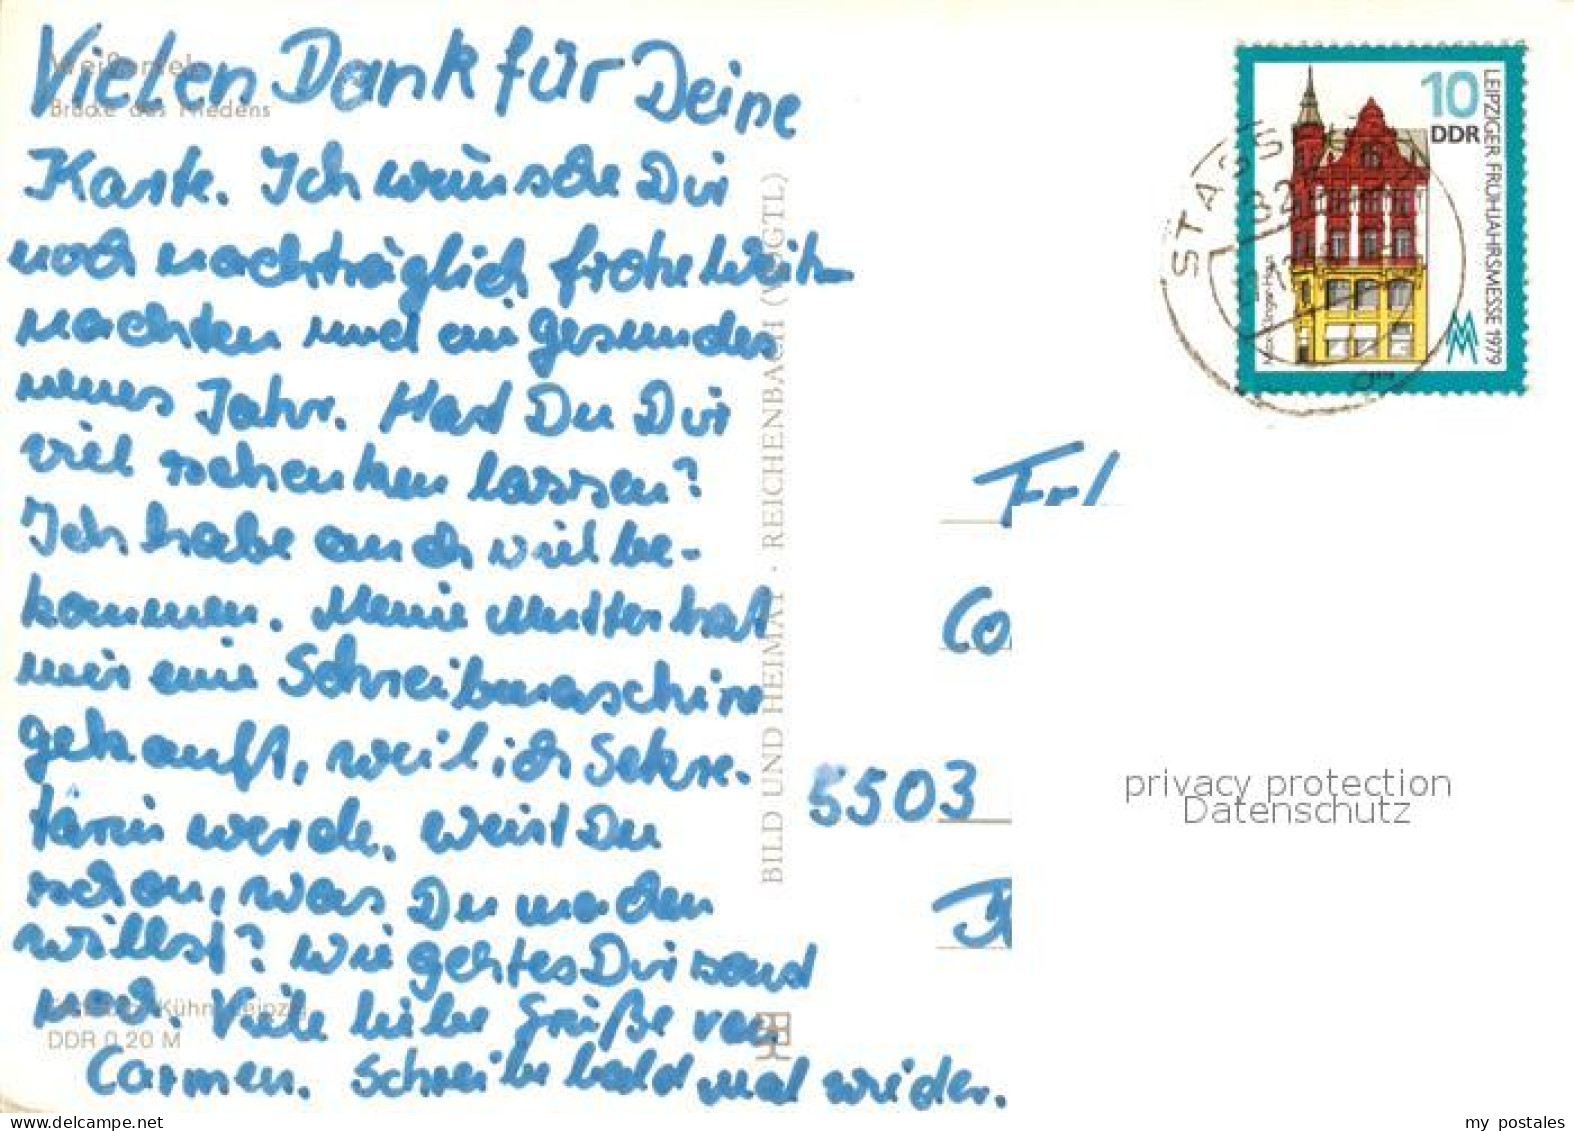 Vielen Dank für Deine
Karte. Ich wünsche Dir
noch nachträglich frohe Weih-
nachten und ein gesundes
neues Jahr. Hast Du Dir
viel schenken lassen?
Ich habe auch viel be-
kommen. Meine Mutter hat
mir eine Schreibmaschine
gekauft, weil ich Sekre-
tärin werde. Weist Du
schon, was Du machen
willst? Wie geht es Dir sonst
noch. Viele liebe Grüße von
Carmen. Schreibe bald mal wieder.
Brücke des Friedens
Kühn, Leipzig
DDR 0,20 M
BILD UND HEIMAT · REICHENBACH (VOGTL)
10
DDR
LEIPZIGER FRÜHJAHRSMESSE 1979
Frl
Co
5503
privacy protection
Datenschutz
my postales